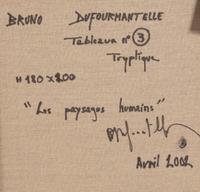 BRUNO DUFOURMANTELLE
Tableaux n° 3
Tryptique
H 180 x 200
"Les paysages humains"
Avril 2002